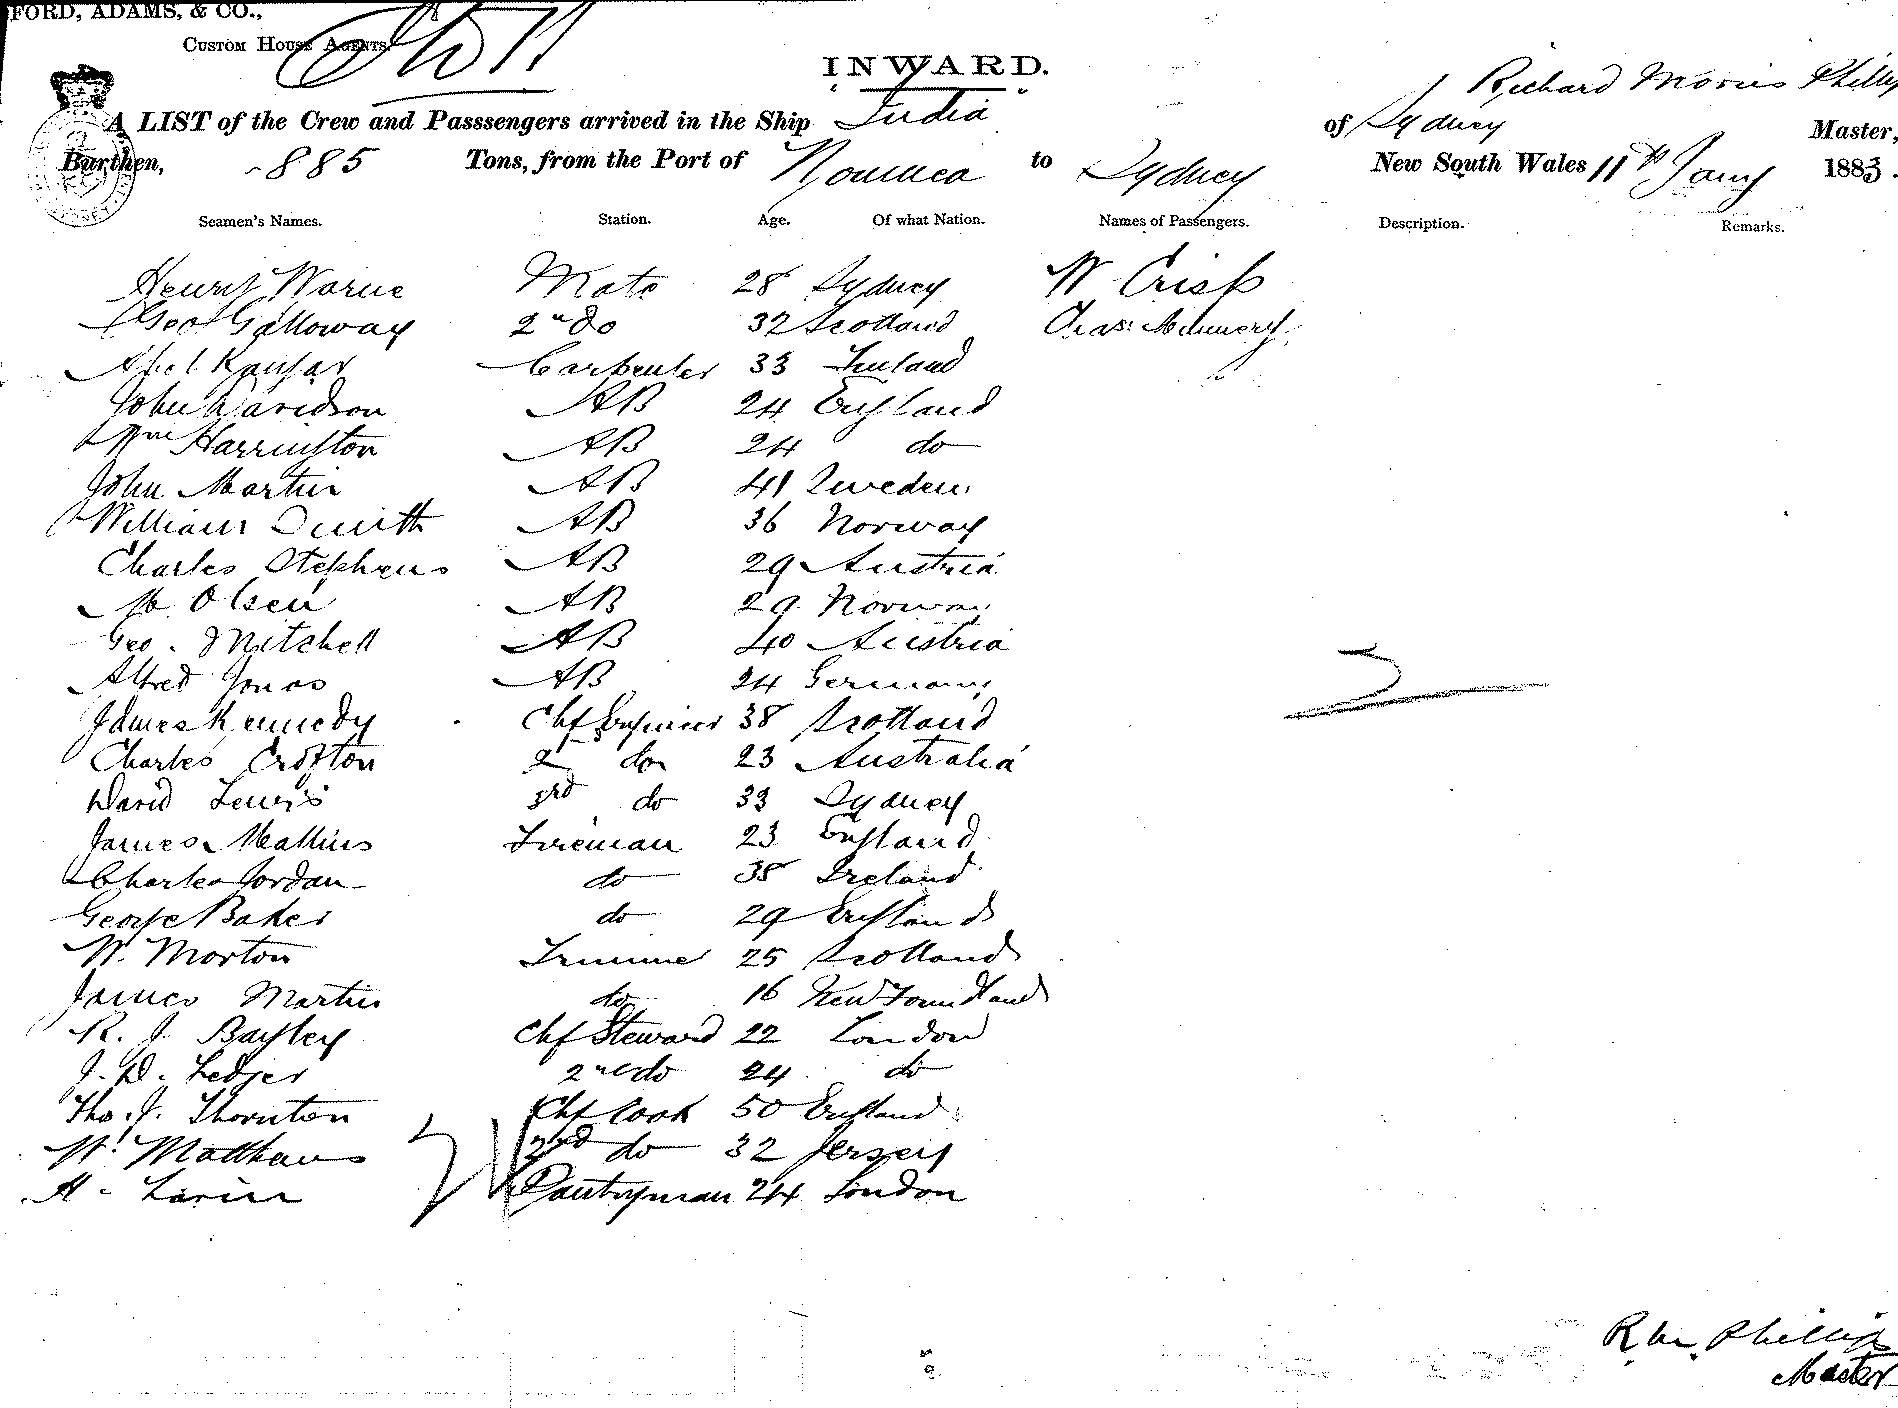 FORD, ADAMS, & CO.,
CUSTOM HOUSE AGENTS.
INWARD.
Richard Morris Phillip
A LIST of the Crew and Passsengers arrived in the Ship India of Sydney Master,
Burthen, 885 Tons, from the Port of Noumea to Sydney New South Wales 11th Jany 1883.
Seamen's Names. Station. Age. Of what Nation. Names of Passengers. Description. Remarks.
Henry Warne Mate 28 Sydney W Crisp
Geo Galloway 2nd do 32 Scotland Chas:
Abel Carpenter 33 Finland
John Davidson AB 24 England
Wm Harrington AB 24 do
John Martin AB 41 Sweden
William Smith AB 36 Norway
Charles Stephens AB 29 Austria
M Olsen AB 29 Norway
Geo. Mitchell AB 40 Austria
Alfred Jonas AB 24 Germany
James Kennedy Chf Engineer 38 Scotland
Charles Crofton 2 do 23 Australia
David Lewis 3rd do 33 Sydney
James Mathins Fireman 23 England
Charles Jordan do 38 Ireland
George Baker do 29 England
W. Morton Trimmer 25 Scotland
James Martin do 16 New Foundland
R. J. Bayley Chf Steward 22 London
J. D. Ledger 2nd do 24 do
Tho. J. Thornton Chf Cook 50 England
W. Matthews 2nd do 32 Jersey
H. Pantryman 24 London
R. M. Phillips
Master